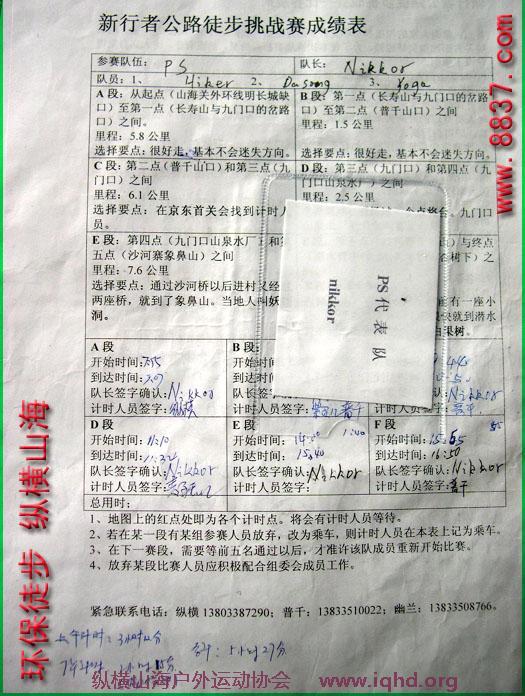 新行者公路徒步挑战赛成绩表
参赛队伍： PS 队长： Nikkor
队员：1、 Hiker 2、 Dasong 3、 Yoga
A 段：从起点（山海关外环线明长城缺口）至第一点（长寿山与九门口的岔路口）之间。
里程：5.8 公里
选择要点：很好走，基本不会迷失方向。
B 段：第一点（长寿山与九门口的岔路口）至第二点（普千山口）之间
里程：1.5 公里
选择要点：很好走，基本不会迷失方向。
C 段：第二点（普千山口）和第三点（九门口）之间
里程：6.1 公里
选择要点：在京东首关会找到计时人员。
D 段：第三点（九门口）和第四点（九门口山泉水厂）之间
里程：2.5 公里
九门口
E 段：第四点（九门口山泉水厂）和
五点（沙河寨象鼻山）之间
里程：7.6 公里
选择要点：通过沙河桥以后进村又经
两座桥，就到了象鼻山。当地人叫妖
洞。
与终点
树下）之
能有一座小
快就到潜水
由果树。
PS 代 表 队
nikkor
A 段
开始时间：
到达时间：
队长签字确认：Nikkor
计时人员签字：纵横
B
开始时
到达时
队长签
计时人员签字： 普千
Nikkor
普千
D 段
开始时间：11:10
到达时间：
队长签字确认：Nikkor
计时人员签字：
E 段
开始时间：
到达时间：15:40
队长签字确认：Nikkor
计时人员签字：
F 段
开始时间：
到达时间：16:50
队长签字确认：Nikkor
计时人员签字：普千
总用时：
1、地图上的红点处即为各个计时点。将会有计时人员等待。
2、若在某一段有某组参赛人员放弃，改为乘车，则计时人员在本表上记为乘车。
3、在下一赛段，需要等前五名通过以后，才准许该队成员重新开始比赛。
4、放弃某段比赛人员应积极配合组委会成员工作。
紧急联系电话：纵横 13803387290；普千：13833510022；幽兰：13833508766。
合计：5小时27分
纵横山海户外运动协会 www.iqhd.org
环保徒步 纵横山海
www.8837.org